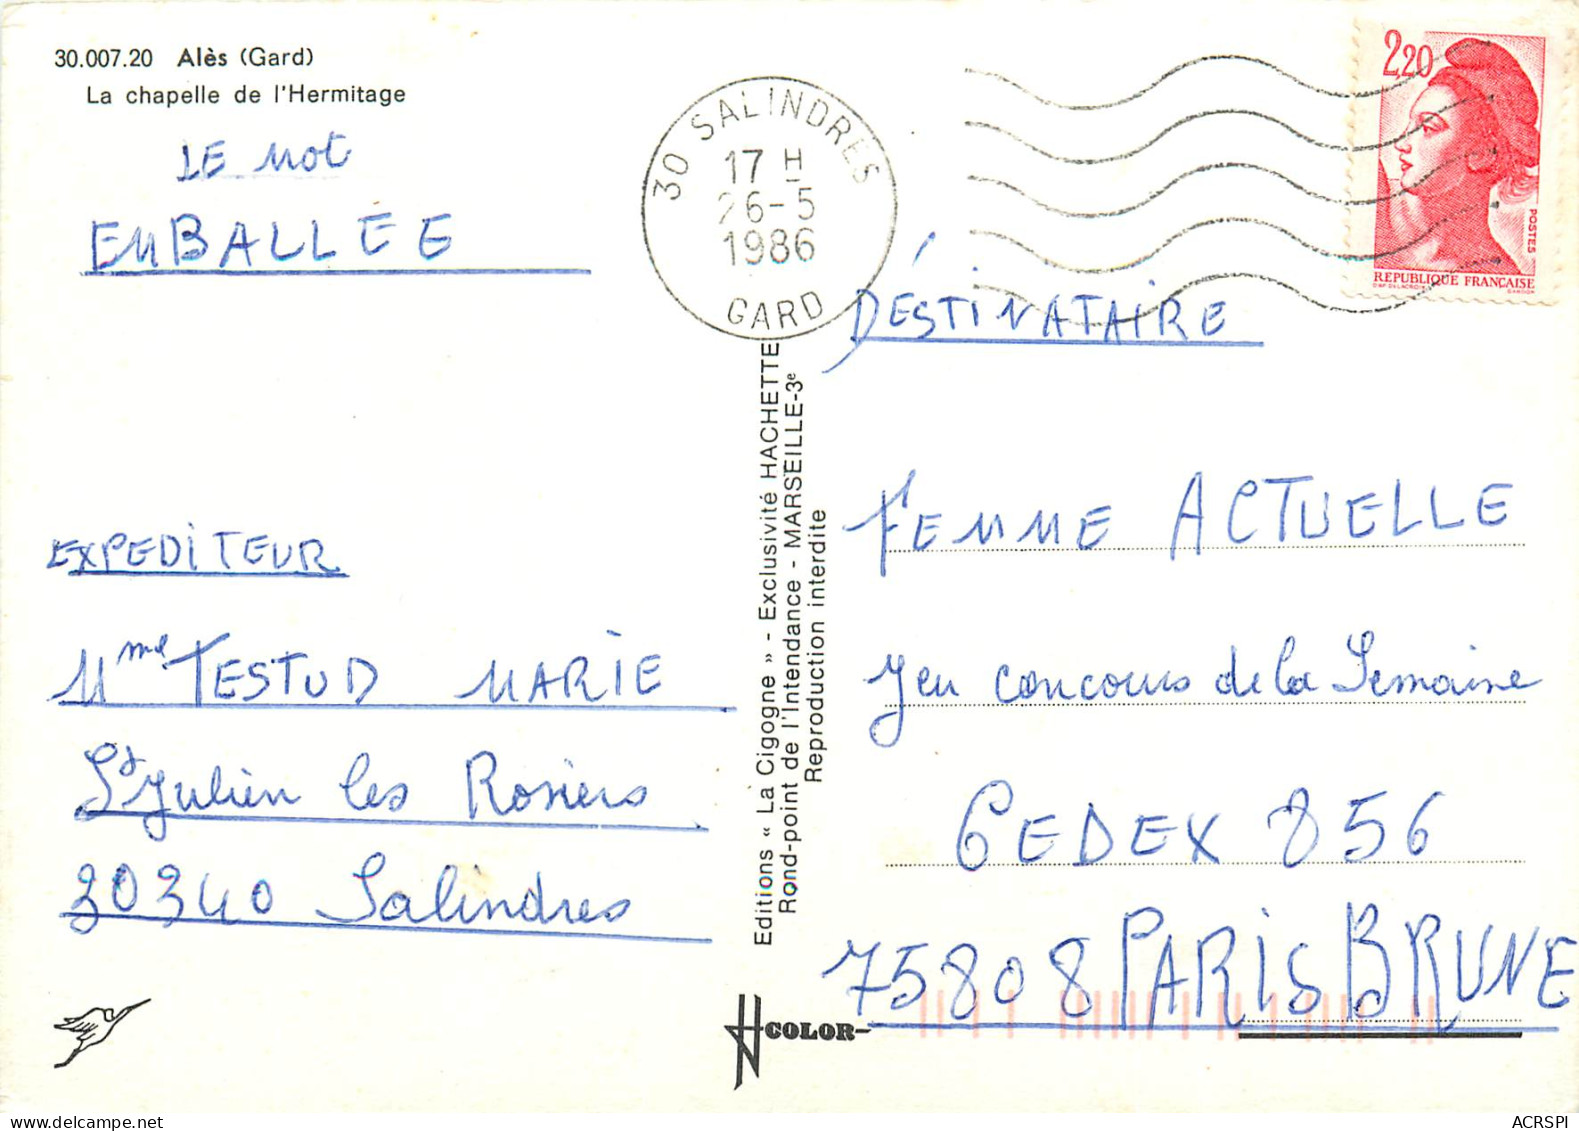 30.007.20 Alès (Gard)
La chapelle de l'Hermitage
LE MOT
EMBALLÉE
EXPEDITEUR
Mme TESTUD MARIE
St Julien les Rosiers
30340 Salindres
30 SALINDRES
17 H
26-5
1986
GARD
2,20
POSTES
REPUBLIQUE FRANÇAISE
D'AP DELACROIX
GANDON
Editions « La Cigogne » - Exclusivité HACHETTE
Rond-point de l'Intendance - MARSEILLE-3e
Reproduction interdite
DÉSTINATAIRE
FEMME ACTUELLE
Jeu concours de la Semaine
CEDEX 856
75808 PARIS BRUNE
COLOR
ACRSPI